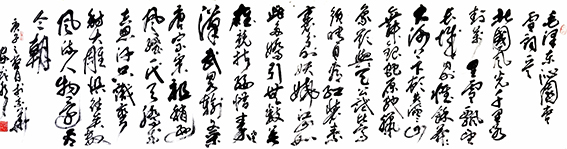 毛泽东沁园春
雪词意
北国风光千里
封万里雪飘
长城内外惟余莽
大河上下顿失滔滔山
舞银蛇原驰蜡
象欲与天公试比高
须晴日看红装素
裹分外妖娆江山如
此多娇引无数英
雄竞折腰惜秦皇
汉武略输文采
唐宗宋祖稍逊
风骚一代天骄成
吉思汗只识弯弓
射大雕俱往矣数
风流人物还看
今朝